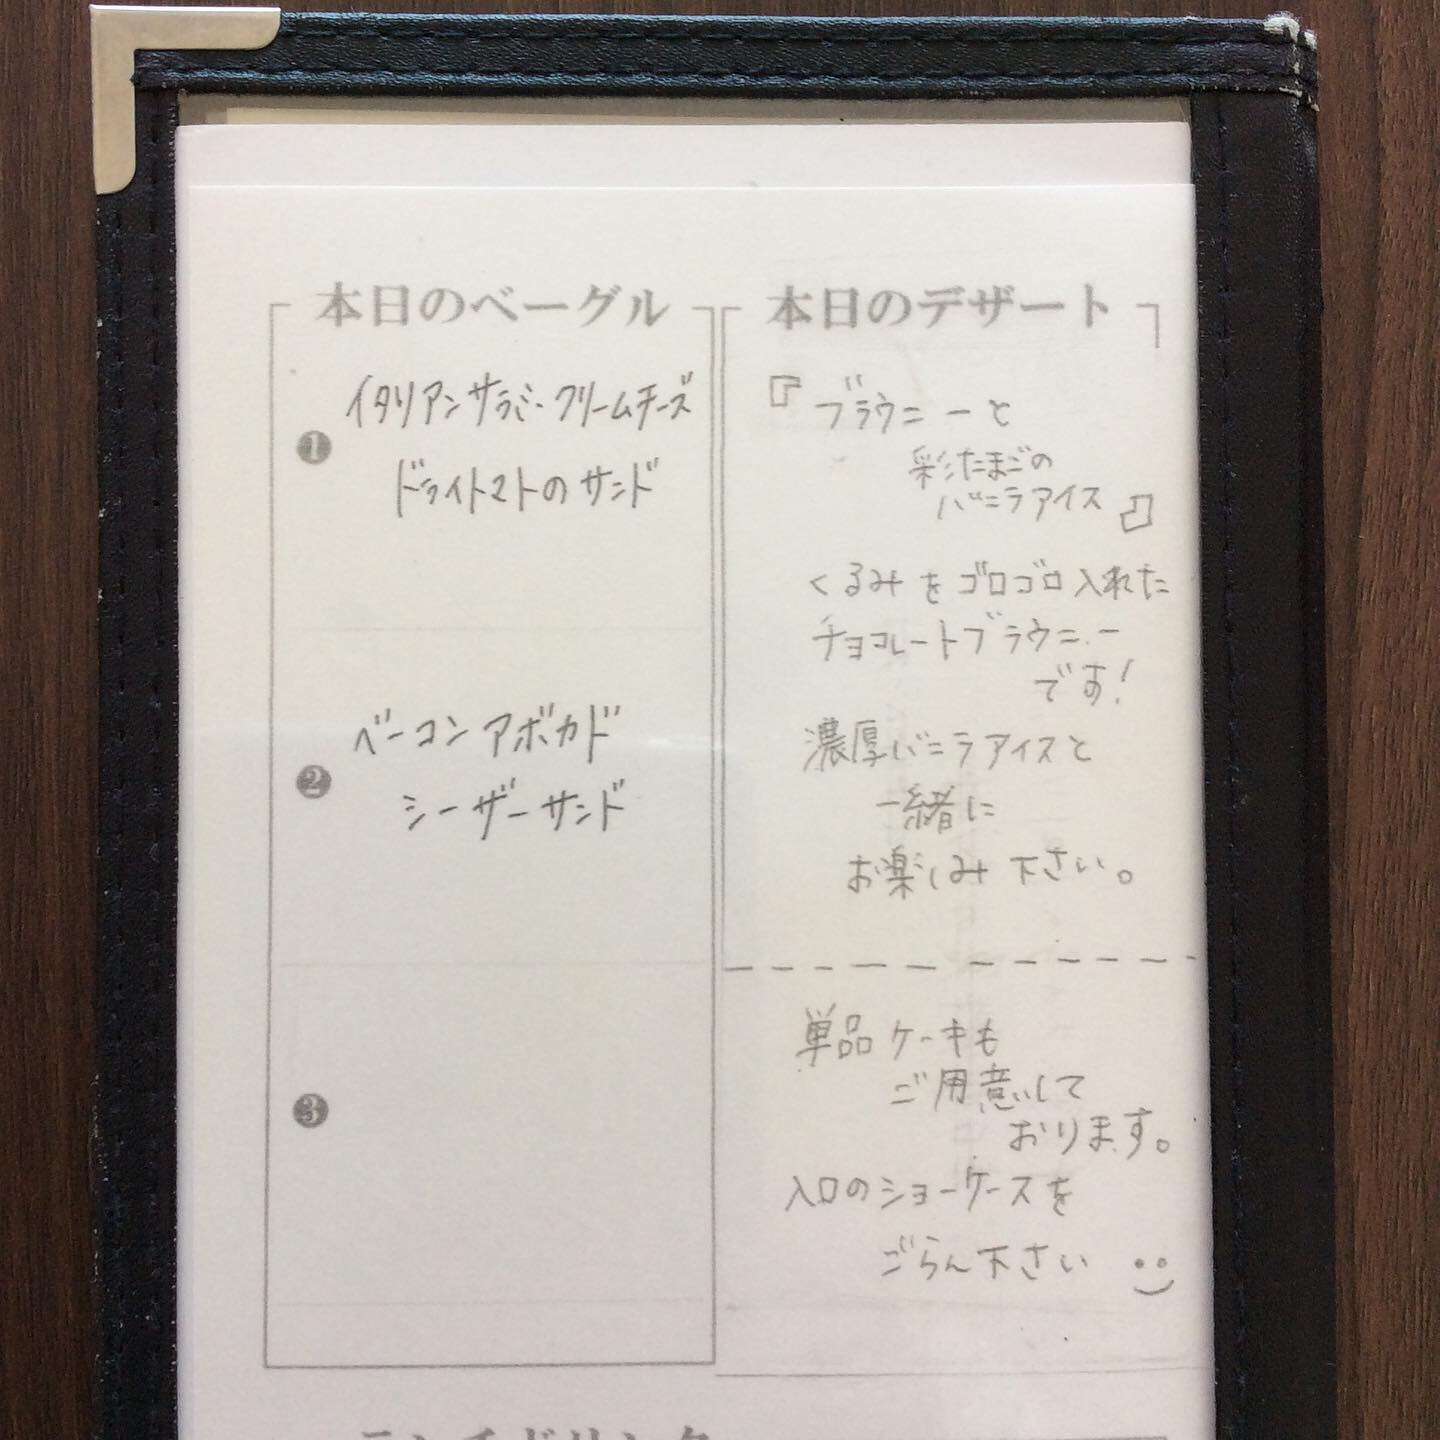 本日のベーグル
❶
イタリアンサラミ・クリームチーズ
ドライトマトのサンド
❷
ベーコンアボカド
シーザーサンド
❸
本日のデザート
『ブラウニーと
彩たまごの
バニラアイス』
くるみをゴロゴロ入れた
チョコレートブラウニー
です!
濃厚バニラアイスと
一緒に
お楽しみ下さい。
単品ケーキも
ご用意して
おります。
入口のショーケースを
ごらん下さい
ランチドリンク